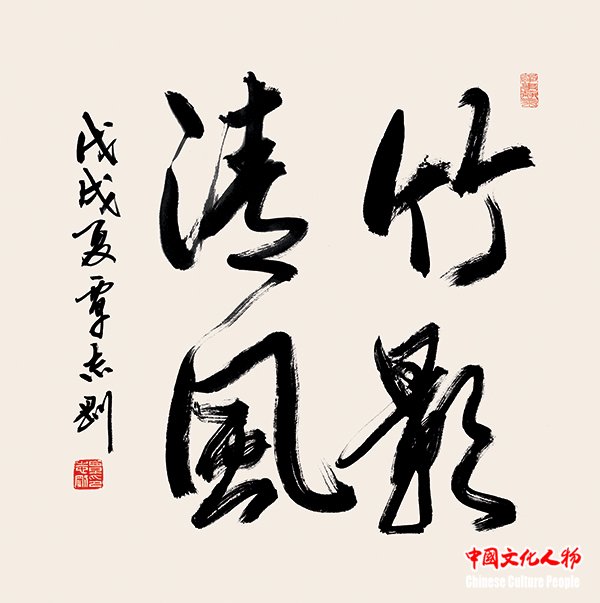 竹影
清風
戊戌夏覃志剛
中國文化人物
Chinese Culture People